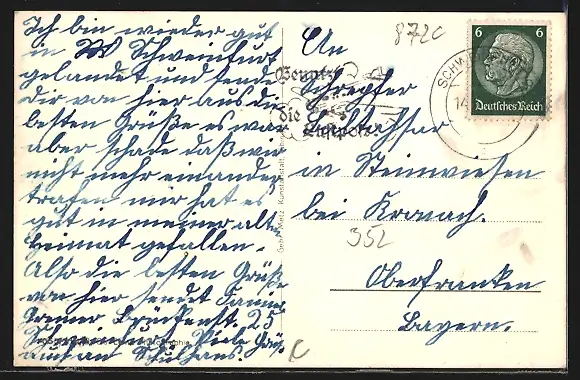 Ich bin wieder gut
in Schweinfurt
gelandet und sende
dir von hier aus die
besten Grüße es war
aber schade daß wir
nicht mehr einander
trafen mir hat es
gut in meiner alten
Heimat gefallen.
Also die besten Grüße
von hier sendet
Brückenst. 25
Schweinfurt Viele Grüße
auch an Schulhans.
An
in Steinwiesen
bei Kronach.
Oberfranken
Bayern.
872c
352
Benutzt
die
Luftpost
SCHW
14
6 6
Deutsches Reich
Gebr. Metz Kunstanstalt